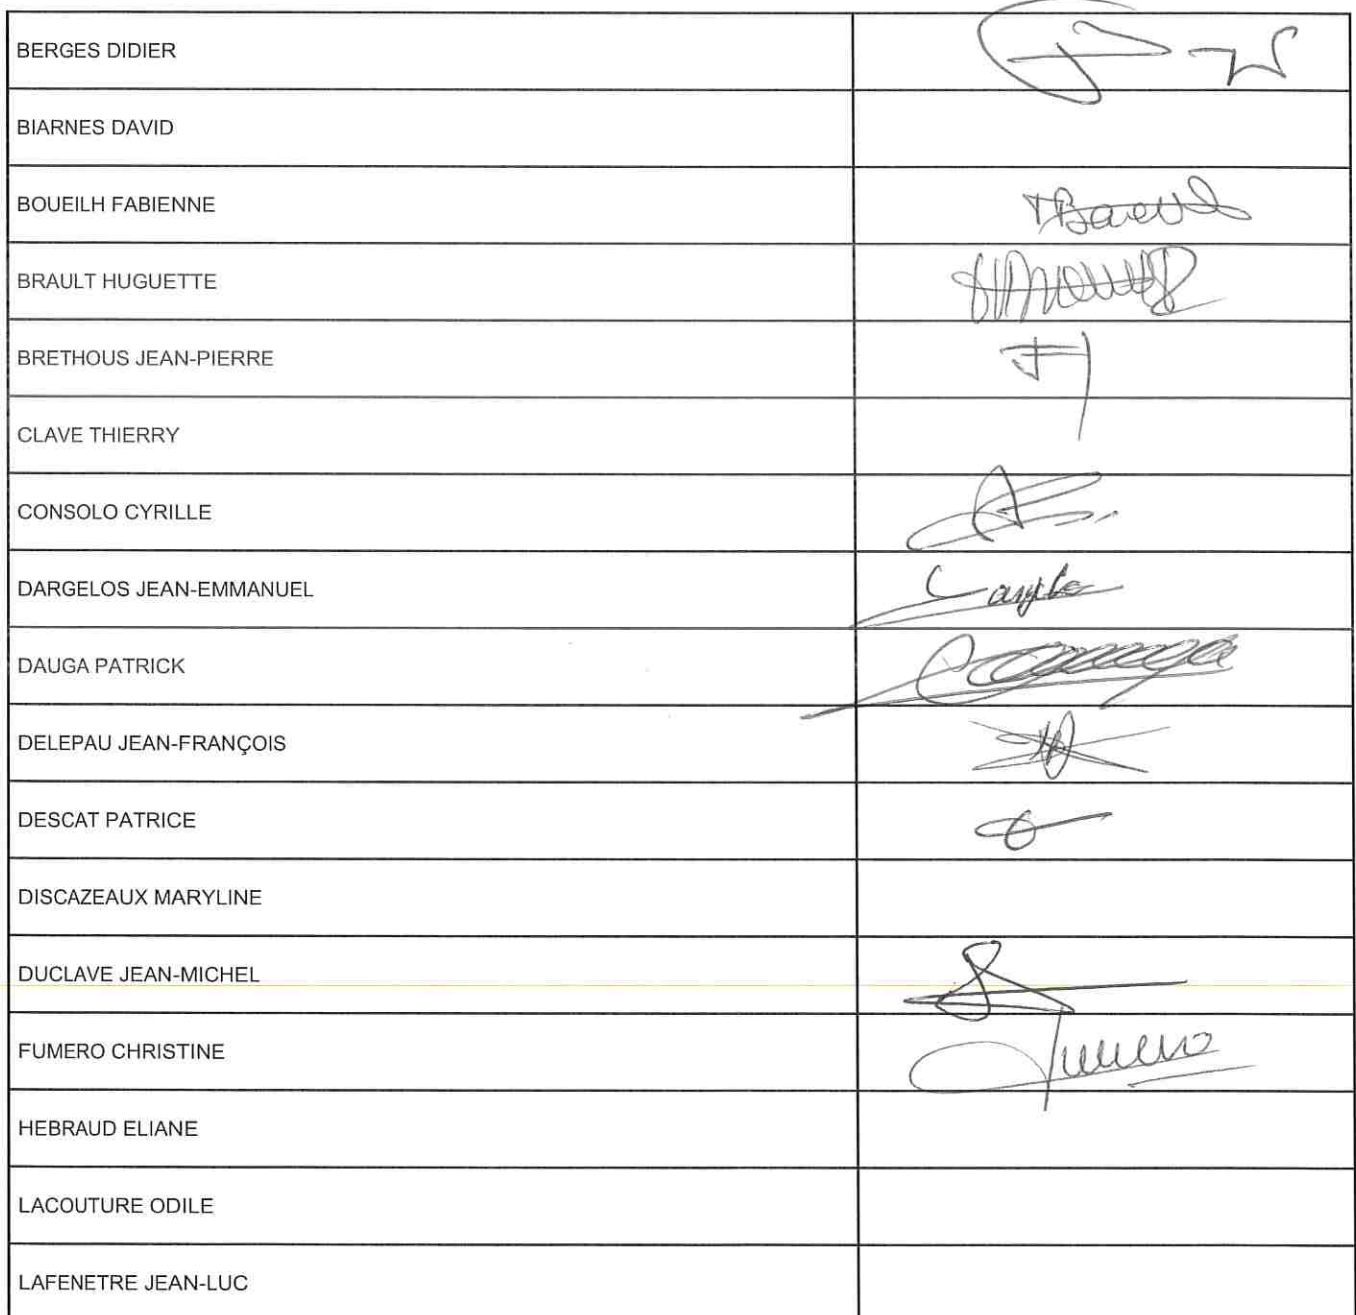 BERGES DIDIER
BIARNES DAVID
BOUEILH FABIENNE
BRAULT HUGUETTE
BRETHOUS JEAN-PIERRE
CLAVE THIERRY
CONSOLO CYRILLE
DARGELOS JEAN-EMMANUEL
DAUGA PATRICK
DELEPAU JEAN-FRANÇOIS
DESCAT PATRICE
DISCAZEAUX MARYLINE
DUCLAVE JEAN-MICHEL
FUMERO CHRISTINE
HEBRAUD ELIANE
LACOUTURE ODILE
LAFENETRE JEAN-LUC